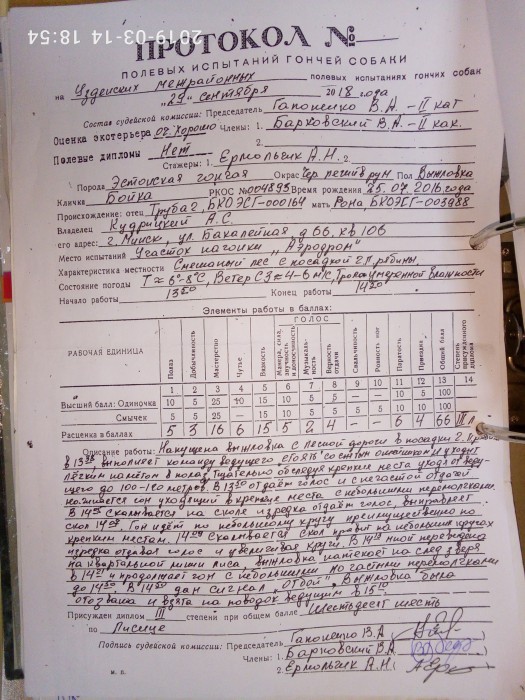 2019-03-14 18:54
ПРОТОКОЛ №
ПОЛЕВЫХ ИСПЫТАНИЙ ГОНЧЕЙ СОБАКИ
на Узденских межрайонных полевых испытаниях гончих собак
"29" сентября 2018 года
Состав судейской комиссии: Председатель Гапоненко В.А. - II кат
Оценка экстерьера оч. хорошо Члены: 1. Барковский В.А. - II кат.
Полевые дипломы Нет 2.
Стажеры: 1. Ермольчик А.Н. 2.
Порода Эстонская гончая Окрас Чер. пегий в рум. Пол Выжловка
Кличка Бойка РКОС № 004895 Время рождения 25.07.2016 года
Происхождение: отец Труба 2, БКОЭСГ-000164 мать Рона, БКОЭСГ-003988
Владелец Кудрицкий А.С.
его адрес: г. Минск, ул. Бакалейная, д 66, кв 106
Место испытаний Участок нагонки "Аэродром"
Характеристика местности Смешаный лес с посадкой 2 П. рябины,
Состояние погоды T ≈ 6°-8°С, Ветер СЗ ≈ 4-6 м/с, Тропа умеренной влажности
Начало работы 13 50 Конец работы 14 20
Элементы работы в баллах:
РАБОЧАЯ ЕДИНИЦА Полаз Добычливость Мастерство Чутье Вязкость ГОЛОС Манера, сила, звучность и доносчивость Музыкальность Верность отдачи Свальчивость Ровность ног Паратость Приездка Общий балл Степень присужденного диплома
1 2 3 4 5 6 7 8 9 10 11 12 13 14
Высший балл: Одиночка 10 5 25 10 15 10 5 5 — — 10 5 100
Смычек 5 5 25 — 15 10 5 5 5 5 10 10 100
Расценка в баллах 5 3 16 6 15 5 2 4 — — 6 4 66 III л
Описание работы: Напущена выжловка с лесной дороги в посадки 2.
в 13 35, выполняет команду ведущего, стоять со снятым ошейником и уходит
лёгким наметом в полаз. Тщательно обследуя крепкие места уходя от веду-
щего до 100-150 метров. В 13 50 отдаёт голос и с нечастой отдачей
начинается гон уходящий в крепкие места с небольшими перемолчками.
В 14 05 скалывается на сколе изредка отдаёт голос, выправляет
скол 14 08. Гон идёт по небольшому кругу преимущественно по
крепким местам. 14 09 Скалывается. Скол правит на небольших кругах
изредка отдавая голос и увеличивая круги. В 14 мной перевидена
на квартальной линии лиса, выжловка натекает на след зверя
в 14 21 и продолжает гон с небольшими но частыми перемолчками
до 14 30. В 14 30 дан сигнал "отбой". Выжловка была
отозвана и взята на поводок ведущим в 15 10
Присужден диплом III степени при общем балле шестьдесят шесть
по Лисице
Подпись судейской комиссии: Председатель Гапоненко В.А.
Члены: 1. Барковский В.А.
м. п. 2 Ермольчик А.Н.